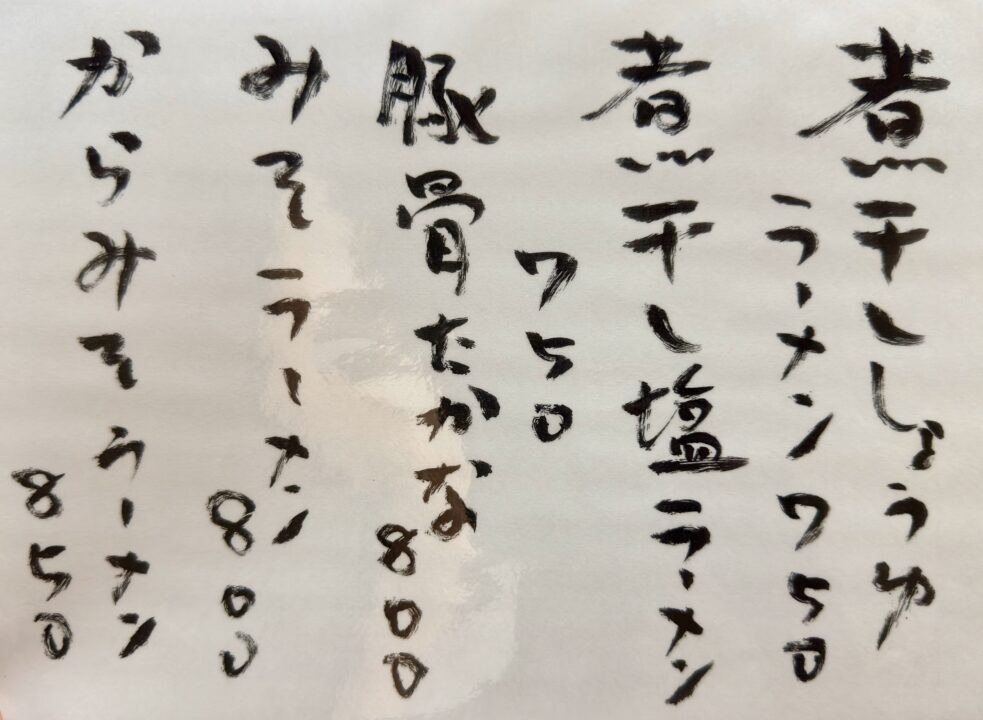 煮干ししょうゆ
ラーメン 750
煮干し塩ラーメン
750
豚骨たかな
800
みそラーメン
800
からみそラーメン
850